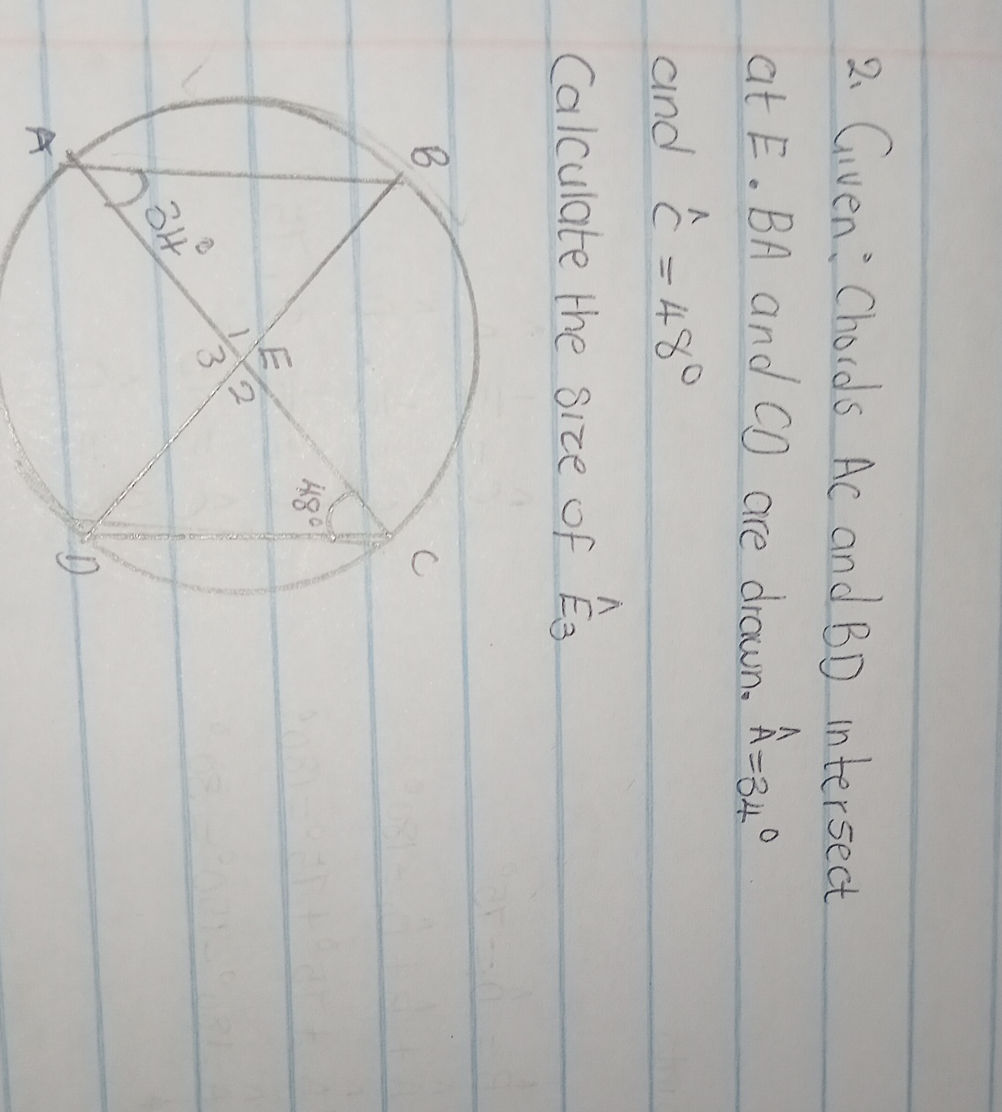 2. Given: Chords AC and BD intersect
at E. BA and CD are drawn. Â = 34°
and Ĉ = 48°
Calculate the size of Ê₃
B
C
48°
E
1
2
3
34°
A
D